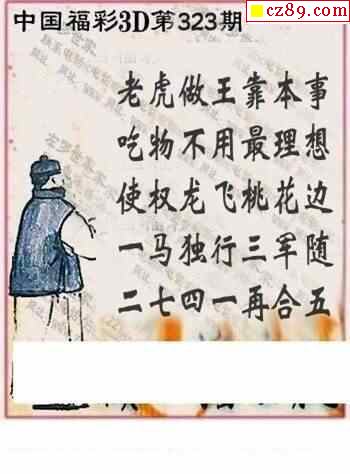 cz89.com
中国福彩3D第323期
老虎做王靠本事
吃物不用最理想
使权龙飞桃花边
一马独行三军随
二七四一再合五